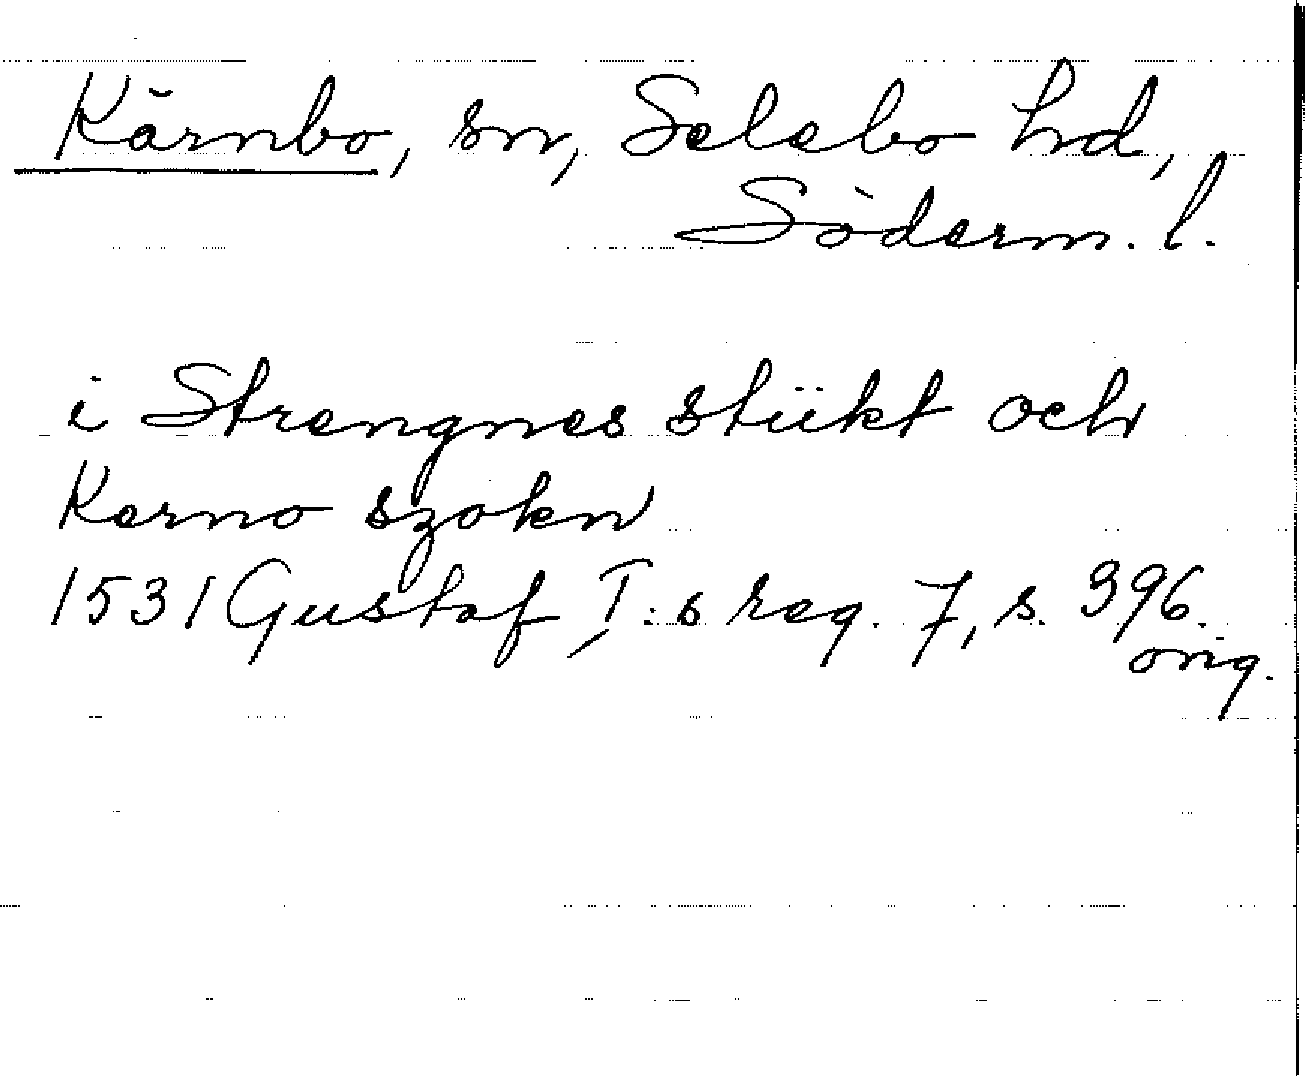 Kärnbo, sn, Selebo hd,
Söderm. l.
i Strengnes stiikt och
Kerno szokn
1531 Gustaf I:s reg. 7, s. 396.
orig.